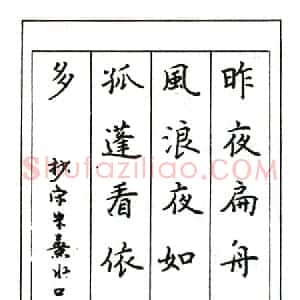 昨夜扁舟
風浪夜如
孤蓬看依
多
抄宋朱熹水口
Shufaziliao.com